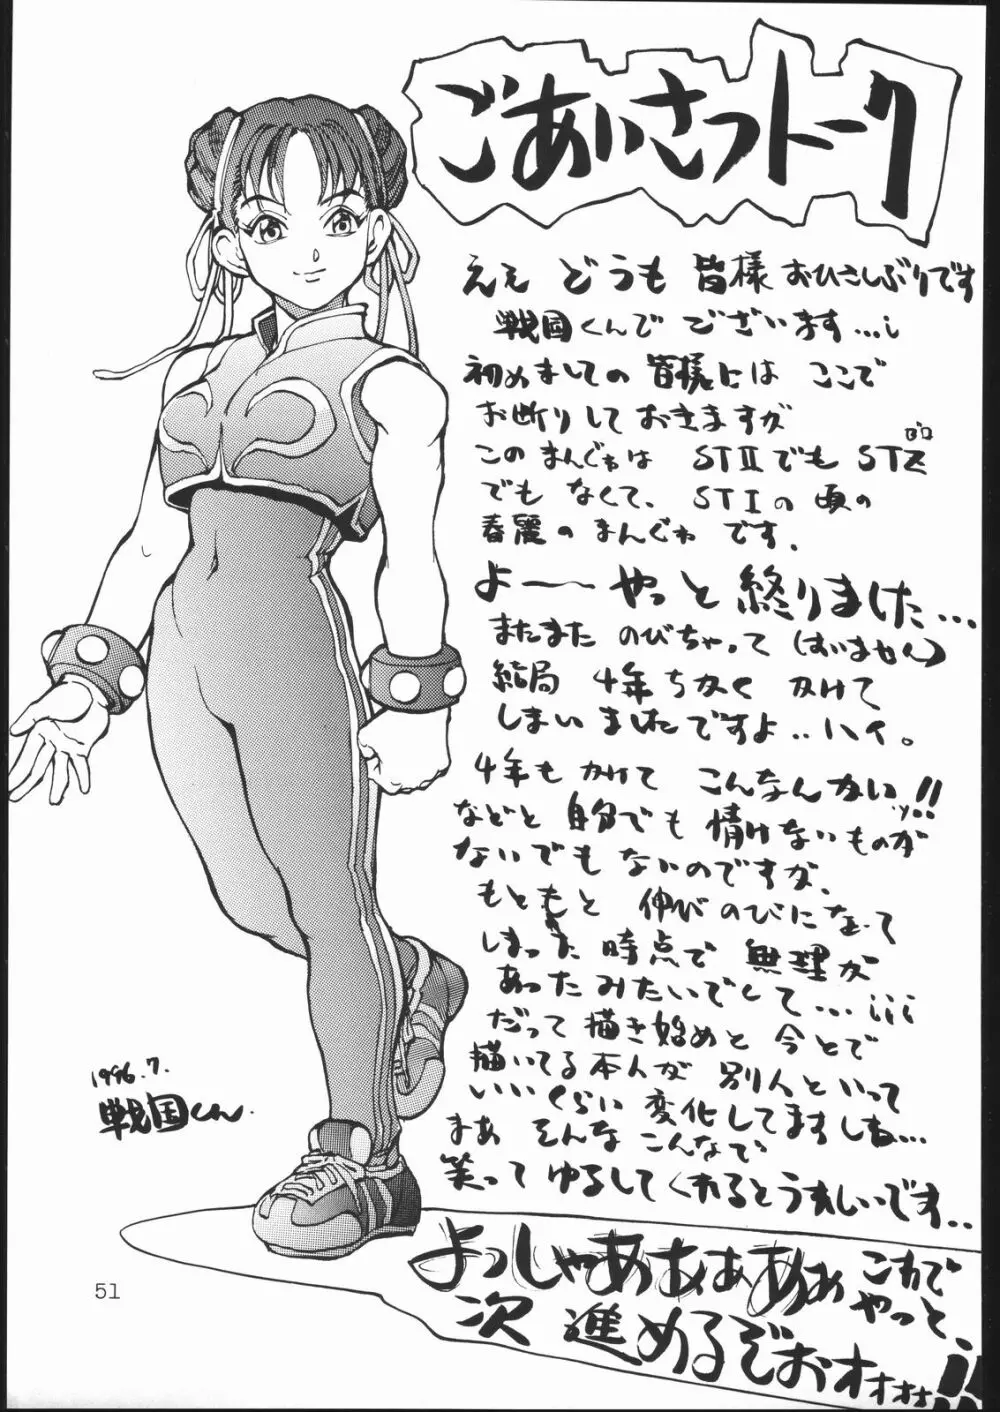 ごあいさつトーク
ええ どうも 皆様 おひさしぶりです
戦国くんで ございます…¡
初めましての 皆様には ここで
お断りして おきますが
この まんぐゎは STⅡでも STZ
ゼロ
でも なくて、 STⅠの 頃の
春麗の まんぐゎ です.
よーーやっと 終りました…
またまた のびちゃって (すいません)
結局 4年ちかく かけて
しまい ましたですよ..ハイ。
4年も かけて こんなんかいッ!!
などと 自分でも 情けないものが
ないでも ないのですが、
もともと 伸び のびになって
しまった 時点で 無理が
あった みたいでして…¡¡¡
だって 描き始めと 今とで
描いてる本人が 別人といって
いいくらい 変化してますしね…
まあ そんな こんなで
笑って ゆるして くれるとうれしいです..
よっしゃあああああ これで
やっと、
次 進めるぞおオォォォ!!
1996.7.
戦国くん.
51